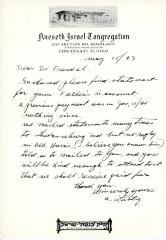 Kneseth Israel Congregation
CINCINNATI
May 15/53
Dear Dr. Frankel
Enclosed please find statement
for your Father's account
a previous payment was in Jan, 1951
nothing since
we mailed statements many times
to but no reply
so Mr. Harris, (I believe you know him)
told us to mailed to you, and you
will be kind enough to attend to it
that we should receive paid for
thank you
Sincerely yours